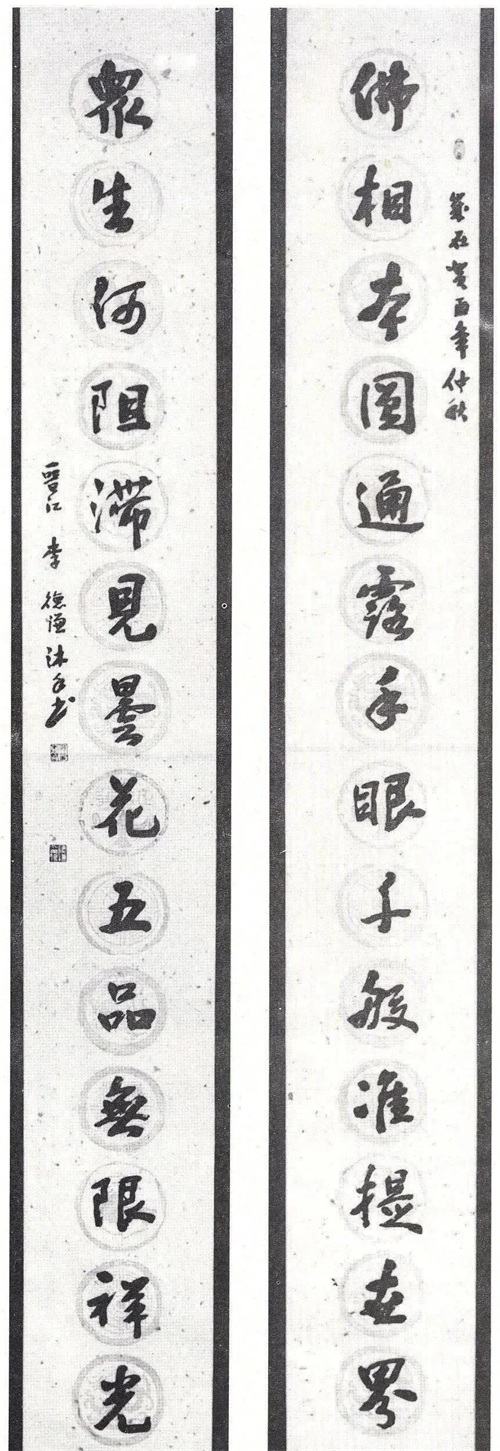 歲在癸酉年仲秋
佛相本圓通露手眼千般准提世界
眾生何阻滯見曇花五品無限祥光
晉江 李德謹沐手書